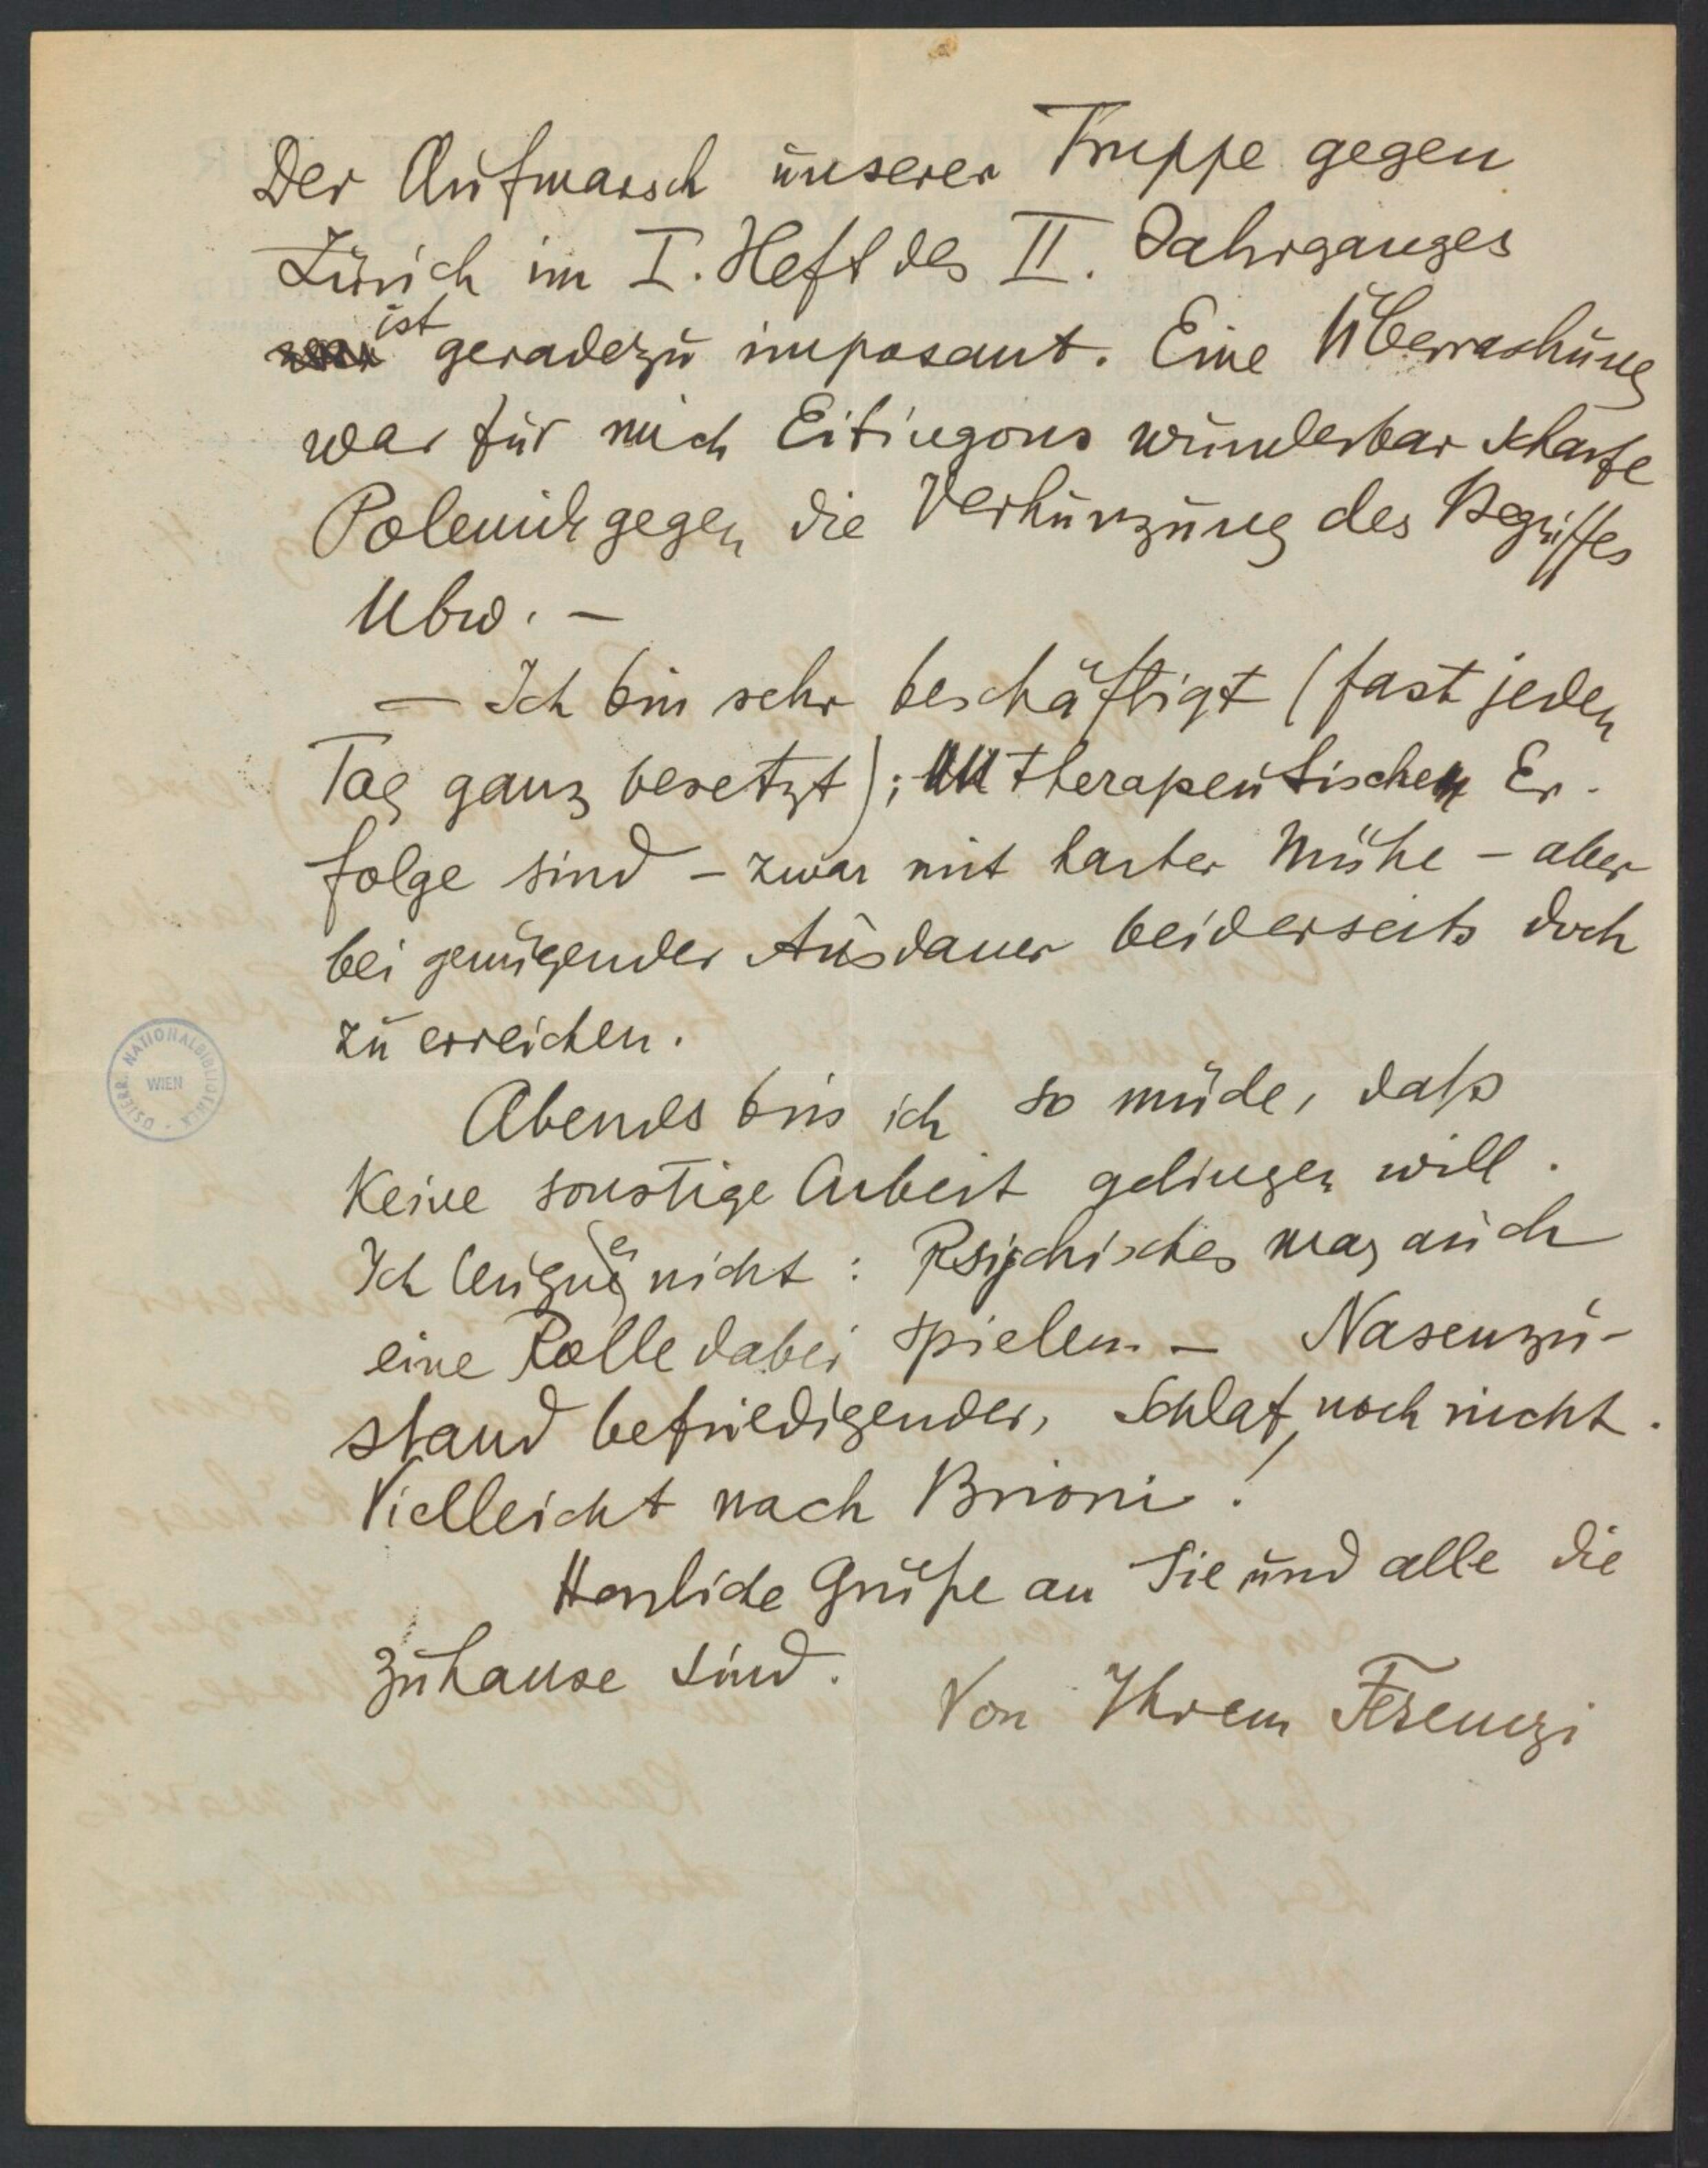 Der Aufmarsch unserer Truppe gegen
Zürich im I. Heft des II. Jahrganges
ist geradezu imposant. Eine Überraschung
war für mich Eitingons wunderbar scharfe
Polemik gegen die Verhunzung des Begriffes
Ubw. –
– Ich bin sehr beschäftigt (fast jeden
Tag ganz besetzt); therapeutische Er-
folge sind – zwar mit harter Mühe – aber
bei genügender Ausdauer beiderseits doch
zu erreichen.
Abends bin ich so müde, daß
keine sonstige Arbeit gelingen will.
Ich leugne es nicht: Psychisches mag auch
eine Rolle dabei spielen. – Nasenzu-
stand befriedigender, Schlaf noch nicht.
Vielleicht nach Brioni!
Herzliche Grüße an Sie und alle die
zuhause sind.
Von Ihrem Ferenczi
ÖSTERR. NATIONALBIBLIOTHEK
WIEN